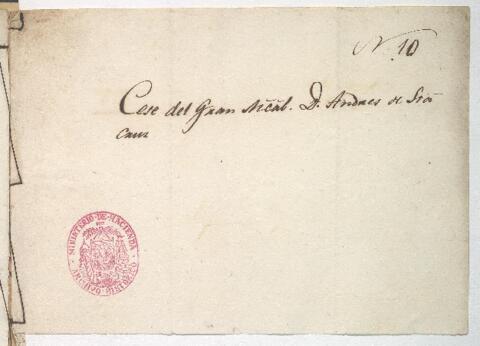 N. 10
Cese del Gran Mcãl. D. Andres de Sta
Cruz
MINISTERIO-DE-HACIENDA
ARCHIVO HISTORICO